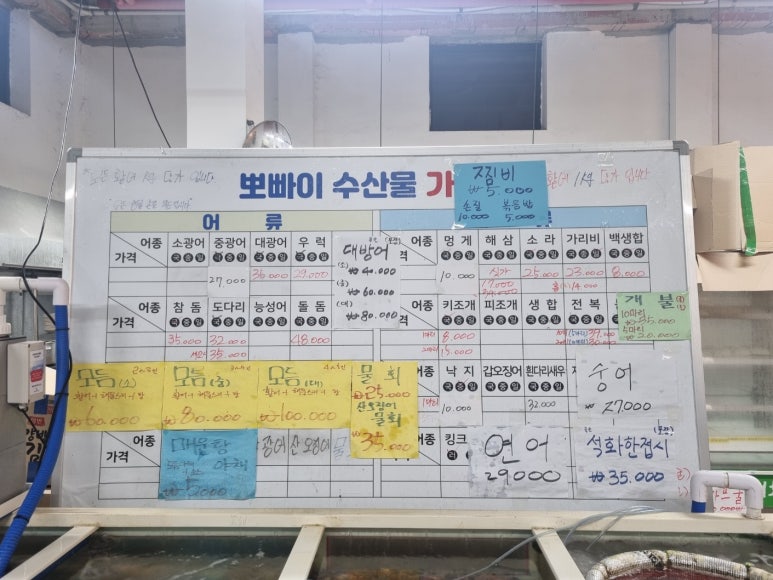 뽀빠이 수산물 가
찜비
₩5.000
손질 볶음밥
10.000 5.000
어 류
어종 소광어 중광어 대광어 우 럭
가격
27.000 36.000 29.000
대방어
(소)
₩40.000
(중)
₩60.000
(대)
₩80.000
어종 멍 게 해 삼 소 라 가리비 백생합
가격
10.000 싯가 25.000 23.000 8.000
어종 참 돔 도다리 능성어 돌 돔
가격
35.000 32.000 48.000
35.000
어종 키조개 피조개 생 합 전 복
가격
8.000
15.000
개 불
10마리
₩35.000
5마리
₩20.000
모듬 (소)
₩60.000
모듬 (중)
₩80.000
모듬 (대)
₩100.000
물 회
₩25.000
산오징어
물회
₩35.000
낙 지 갑오징어 흰다리새우
10.000 32.000
숭 어
₩27000
어종
가격
매운탕
야채
₩5000
광어 산오징어 물
어종 킹크
가격
연어
29000
석화한접시
₩35.000